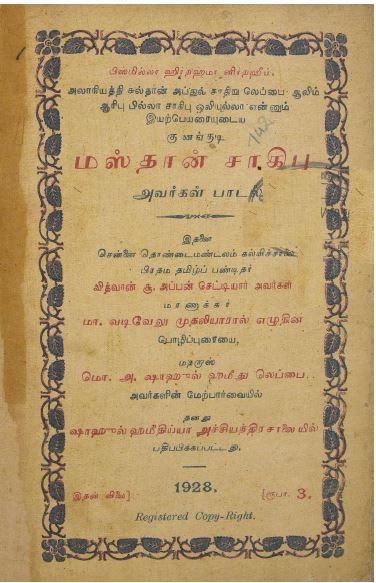 பிஸ்மில்லா ஹிர்றஹ்மா னிர்றஹீம்.
அலாரியத்தி சுல்தான் அப்துல் காதிறு லெப்பை ஆலிம்
ஆரிபு பில்லா சாகிபு ஒலியுல்லா என்னும்
இயற்பெயரையுடைய
குணங்குடி
மஸ்தான் சாகிபு
அவர்கள் பாடல்
இதனை
சென்னை தொண்டைமண்டலம் கல்விச்சாலை
பிரதம தமிழ்ப் பண்டிதர்
வித்வான் சூ. அப்பன் செட்டியார் அவர்கள்
மாணாக்கர்
மா. வடிவேலு முதலியாரால் எழுதின
பொழிப்புரையை,
மஹரூஸ்
மொ. அ. ஷாஹுல் ஹமீது லெப்பை
அவர்களின் மேற்பார்வையில்
தனது
ஷாஹுல் ஹமீதிய்யா அச்சியந்திர சாலையில்
பதிப்பிக்கப்பட்டது.
1928.
இதன் விலை] [ரூபா. 3.
Registered Copy-Right.